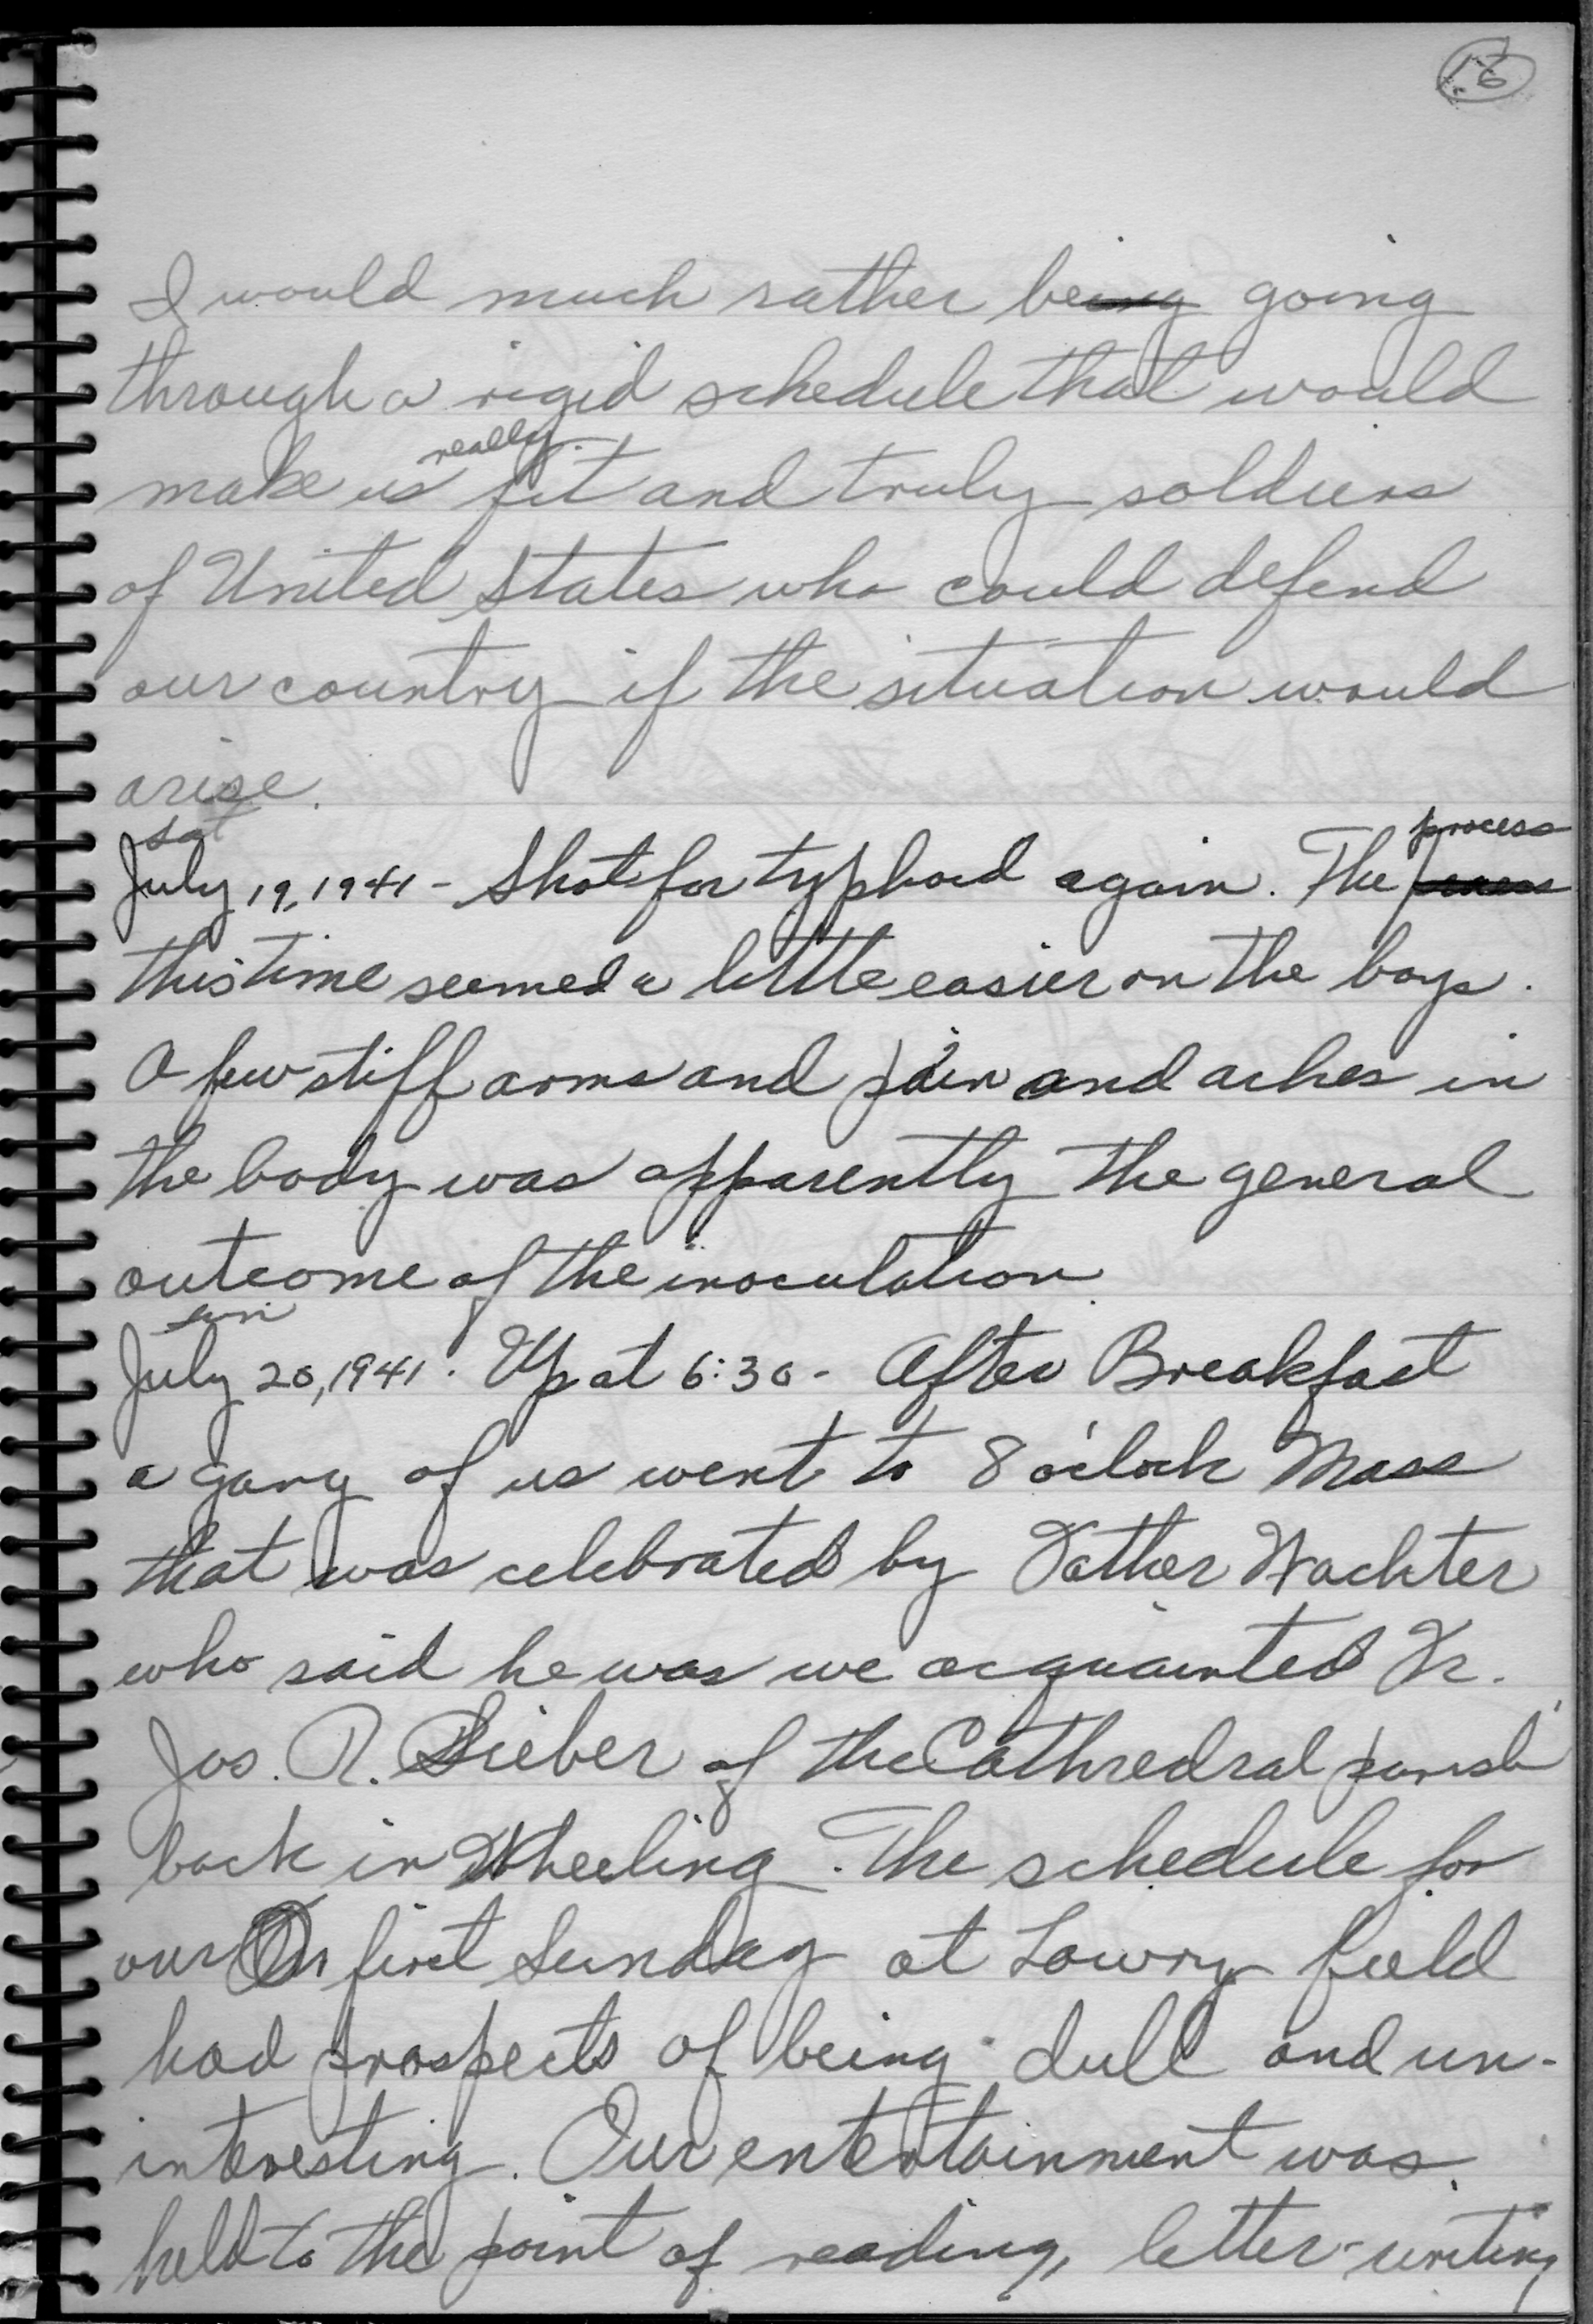 16
I would much rather be going
through a rigid schedule that would
really
make us fit and truly soldiers
of United States who could defend
our country if the situation would
arise.
Sat
process
July 19, 1941 - Shots for typhoid again. The
this time seemed a little easier on the boys.
A few stiff arms and pain and aches in
the body was apparently the general
outcome of the inoculation.
Sun
July 20, 1941. Up at 6:30 - After Breakfast
a gang of us went to 8 o'clock Mass
that was celebrated by Father Wachter
who said he was we acquainted Fr.
Jos. R. Sieber of the Cathredral parish
back in Wheeling. The schedule for
our first Sunday at Lowry field
had prospects of being dull and un-
interesting. Our entertainment was
held to the point of reading, letter-writing,